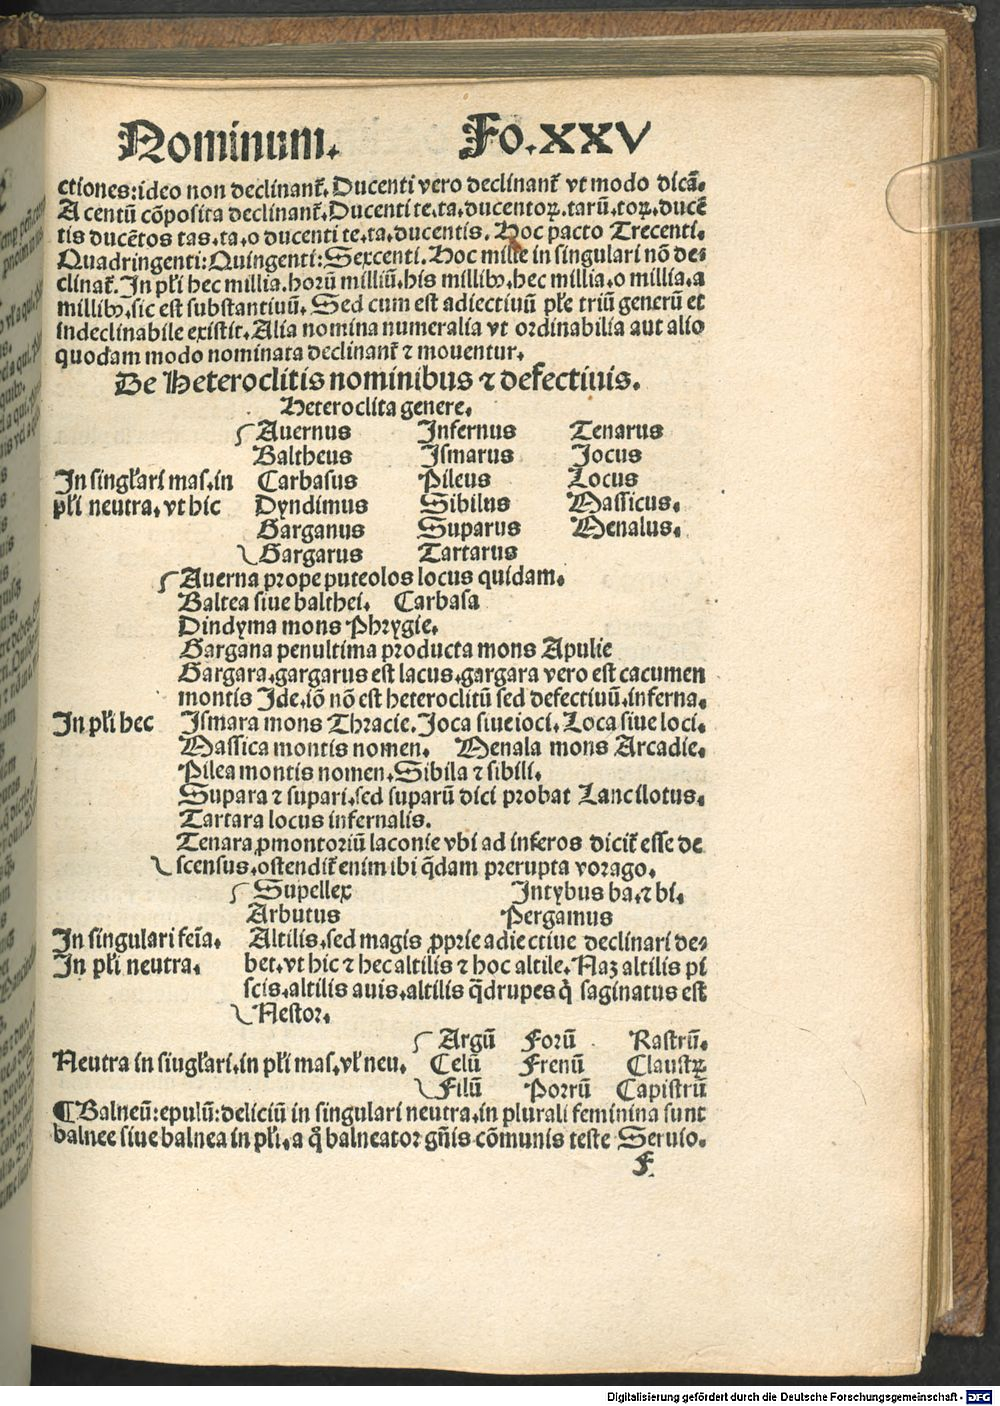 Nominum. Fo. XXV
ctiones: ideo non declinant᷑. Ducenti vero declinant᷑ vt modo dicā.
A centū cōposita declinant᷑. Ducenti te. ta. ducentoꝝ. tarū. toꝝ. ducē
tis ducētos tas. ta. o ducenti te. ta. ducentis. Hoc pacto Trecenti.
Quadringenti: Quingenti: Sexcenti. Hoc mille in singulari nō de-
clinat᷑. In pl̄i hec millia. horū milliū. his millibꝰ. hec millia. o millia. a
millibꝰ. sic est substantiuū. Sed cum est adiectiuū pl̄e triū generū et
indeclinabile existit. Alia nomina numeralia vt ordinabilia aut alio
quodam modo nominata declinant᷑ ⁊ mouentur.
De Heteroclitis nominibus ⁊ defectiuis.
Heteroclita genere.
Auernus Infernus Tenarus
Baltheus Ismarus Jocus
In singl̄ari mas. in Carbasus Pileus Locus
pl̄i neutra. vt hic Dyndimus Sibilus Massicus.
Garganus Suparus Menalus.
Gargarus Tartarus
Auerna prope puteolos locus quidam.
Baltea siue balthei. Carbasa
Dindyma mons Phrygie.
Gargana penultima producta mons Apulie
Gargara. gargarus est lacus. gargara vero est cacumen
montis Ide. iō nō est heteroclitū sed defectiuū. inferna.
In pl̄i hec Ismara mons Thracie. Joca siue ioci. Loca siue loci.
Massica montis nomen. Menala mons Arcadie.
Pilea montis nomen. Sibila ⁊ sibili.
Supara ⁊ supari. sed suparū dici probat Lancilotus.
Tartara locus infernalis.
Tenara ꝓmontoriū laconie vbi ad inferos dicit᷑ esse de
scensus. ostendit᷑ enim ibi q̄dam prerupta vorago.
Supellex Intybus ba. ⁊ bi.
Arbutus Pergamus
In singulari feīa. Altilis. sed magis ꝓprie adiectiue declinari de-
In pl̄i neutra. bet. vt hic ⁊ hec altilis ⁊ hoc altile. Naꝫ altilis pi
scis. altilis auis. altilis q̄drupes q̇ saginatus est
Nestor.
Argū Forū Rastrū.
Neutra in siugl̄ari. in pl̄i mas. vl̄ neu. Celū Frenū Claustꝝ
Filū Porrū Capistrū
¶ Balneū: epulū: deliciū in singulari neutra. in plurali feminina sunt
balnee siue balnea in pl̄i. a q̇ balneator gn̄is cōmunis teste Seruio.
F
Digitalisierung gefördert durch die Deutsche Forschungsgemeinschaft - DFG